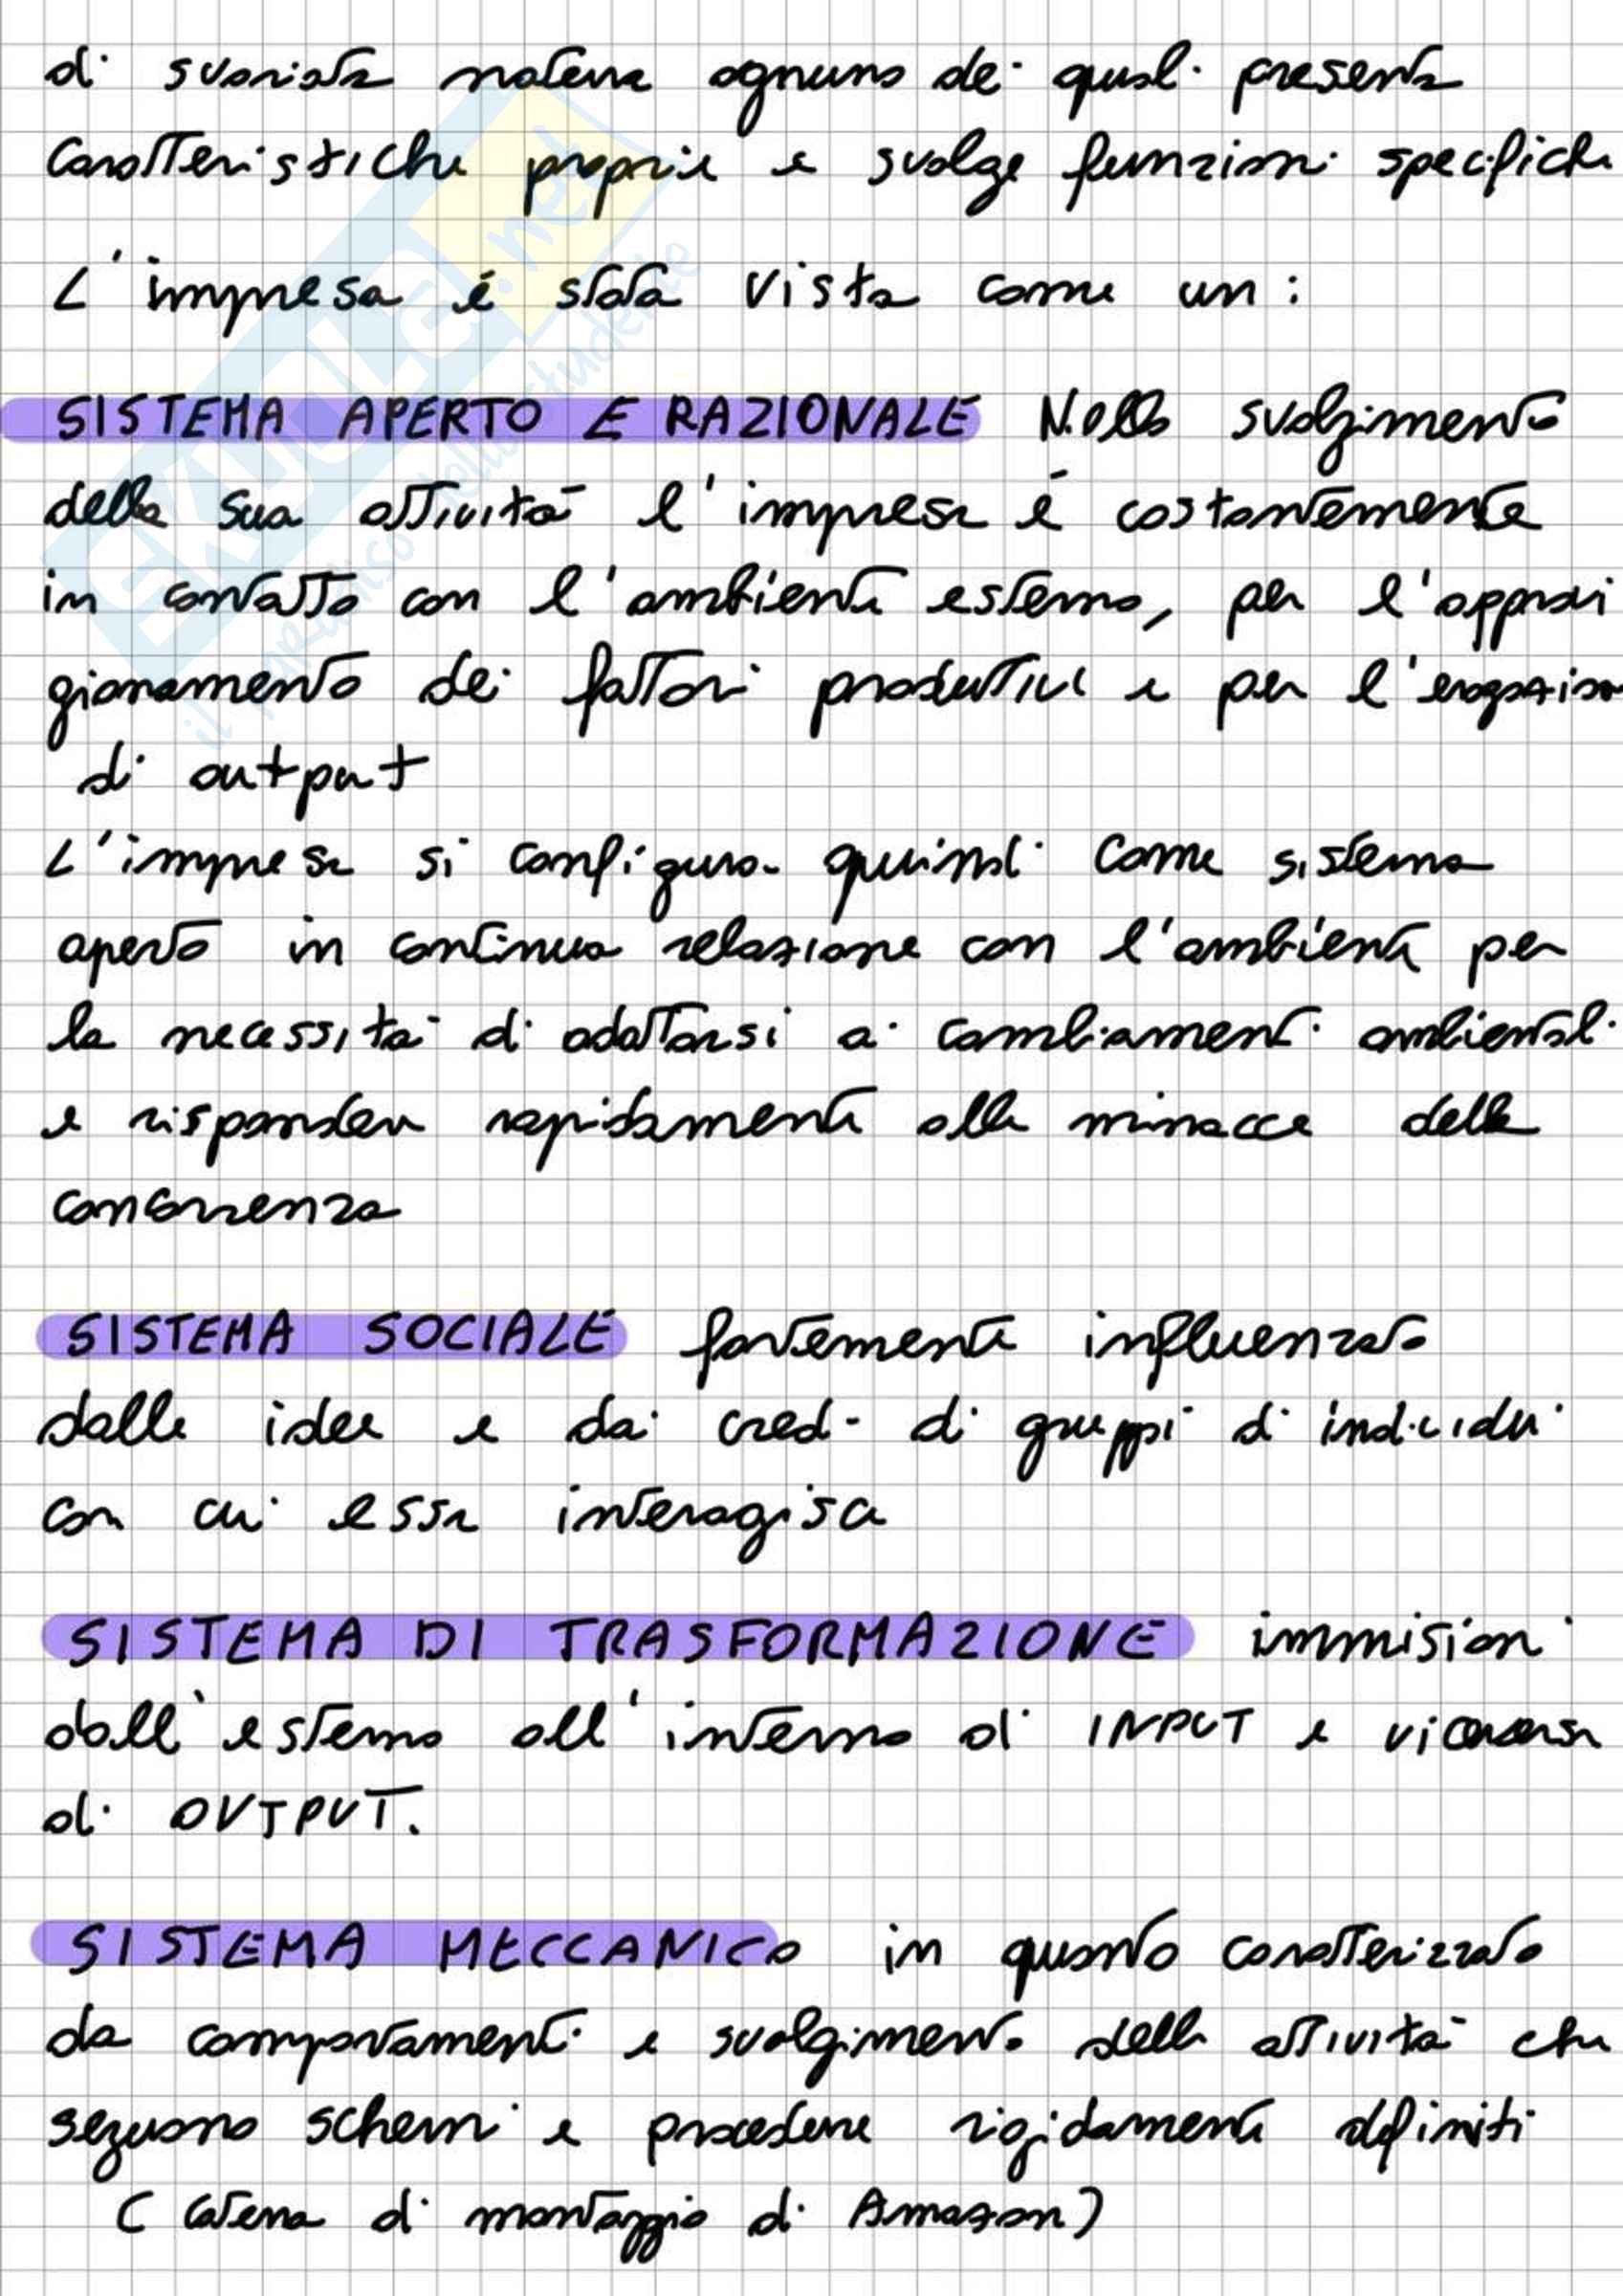 di svariata natura ognuno dei quali presenta
caratteristiche proprie e svolge funzioni specifiche
L'impresa è stata vista come un:
SISTEMA APERTO E RAZIONALE Nello svolgimento
della sua attività l'impresa è costantemente
in contatto con l'ambiente esterno, per l'approvi
gionamento dei fattori produttivi e per l'erogazione
di output
L'impresa si configura quindi come sistema
aperto in continua relazione con l'ambiente per
la necessità di adattarsi ai cambiamenti ambientali
e rispondere rapidamente alle minacce della
concorrenza
SISTEMA SOCIALE fortemente influenzato
dalle idee e dai credi di gruppi di individui
con cui essa interagisce
SISTEMA DI TRASFORMAZIONE immisioni
dall'esterno all'interno di INPUT e viceversa
di OUTPUT.
SISTEMA MECCANICO in quanto caratterizzato
da comportamenti e svolgimento delle attività che
seguono schemi e procedure rigidamente definiti
(catena di montaggio di Amazon)
SKUOLA.net
il paradiso dello studente